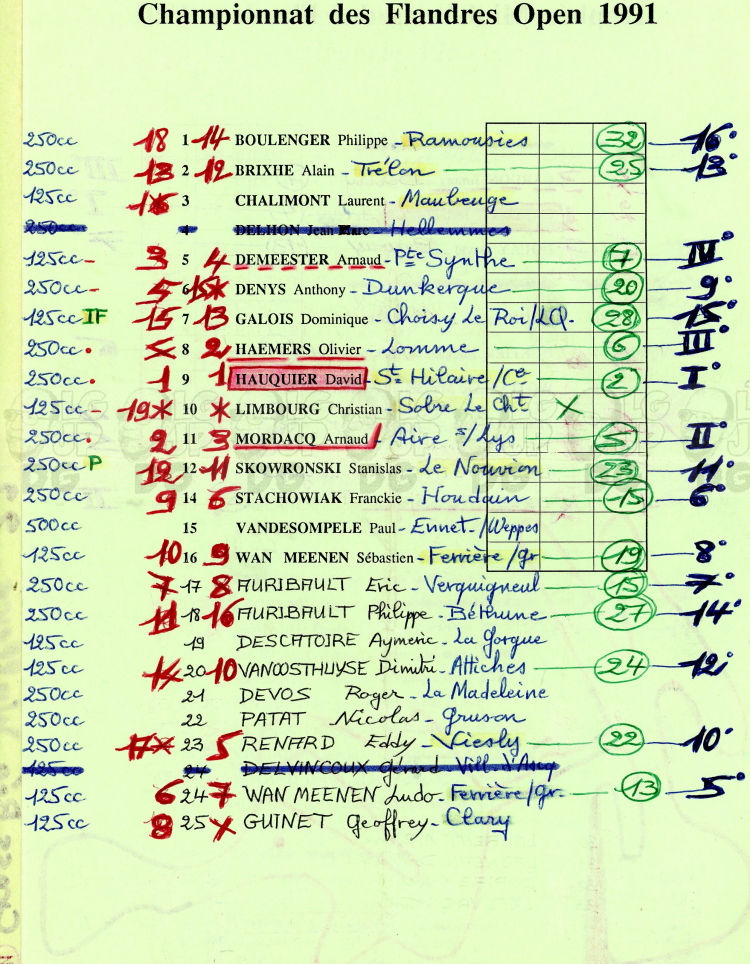 Championnat des Flandres Open 1991
250cc 18 1 14 BOULENGER Philippe - Ramousies 32 16°
250cc 13 2 12 BRIXHE Alain - Trélon 25 13°
125cc 3 CHALIMONT Laurent - Maubeuge
250cc 4 DELHON Jean Marc - Hellemmes
125cc - 3 5 4 DEMEESTER Arnaud - Pte Synthe 7 IV°
250cc - 6 DENYS Anthony - Dunkerque 20 9°
125cc IF 15 7 13 GALOIS Dominique - Choisy Le Roi/LQ. 28 15°
250cc . 8 2 HAEMERS Olivier - Lomme 6 III°
250cc . 1 9 1 HAUQUIER David - Ste Hilaire/Ce 2 I°
125cc - 19 10 LIMBOURG Christian - Solre Le Cht X
250cc . 2 11 3 MORDACQ Arnaud - Aire s/Lys 5 II°
250cc P 12 12 11 SKOWRONSKI Stanislas - Le Nouvion 23 11°
250cc 9 14 6 STACHOWIAK Franckie - Houdain 15 6°
500cc 15 VANDESOMPELE Paul - Ennet./Weppes
125cc 10 16 9 WAN MEENEN Sébastien - Ferrière/gr 19 8°
250cc 7 17 8 AURIBAULT Eric - Verquigneul 15 7°
250cc 11 18 16 AURIBAULT Philippe - Béthune 27 14°
125cc 19 DESCATOIRE Aymeric - La Gorgue
125cc 20 10 VANOOSTHUYSE Dimitri - Attiches 24 12°
250cc 21 DEVOS Roger - La Madeleine
250cc 22 PATAT Nicolas - Gruson
250cc 23 5 RENARD Eddy - Viesly 22 10°
125cc 24 DELVINCOUX Gérard Vill. d'Ascq
125cc 6 24 7 WAN MEENEN Ludo - Ferrière/gr. 13 5°
125cc 8 25 GUINET Geoffrey - Clary